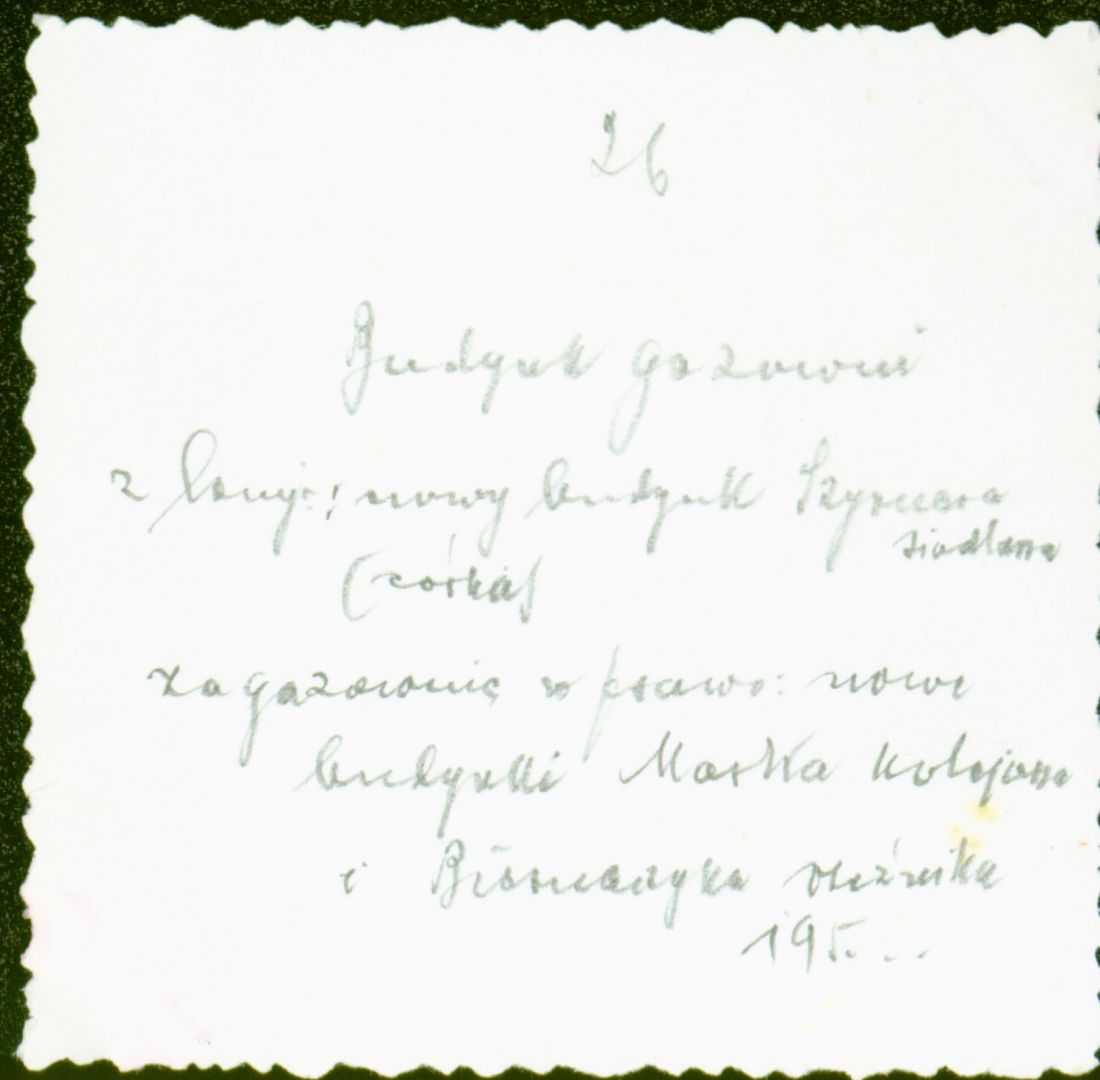 26
Budynek gazowni
z lewej: nowy budynek Szymara
siodlarza
(córka)
za gazownię w prawo: nowe
budynki Marka kolejarza
i Bismarzyka rzeźnika
195...